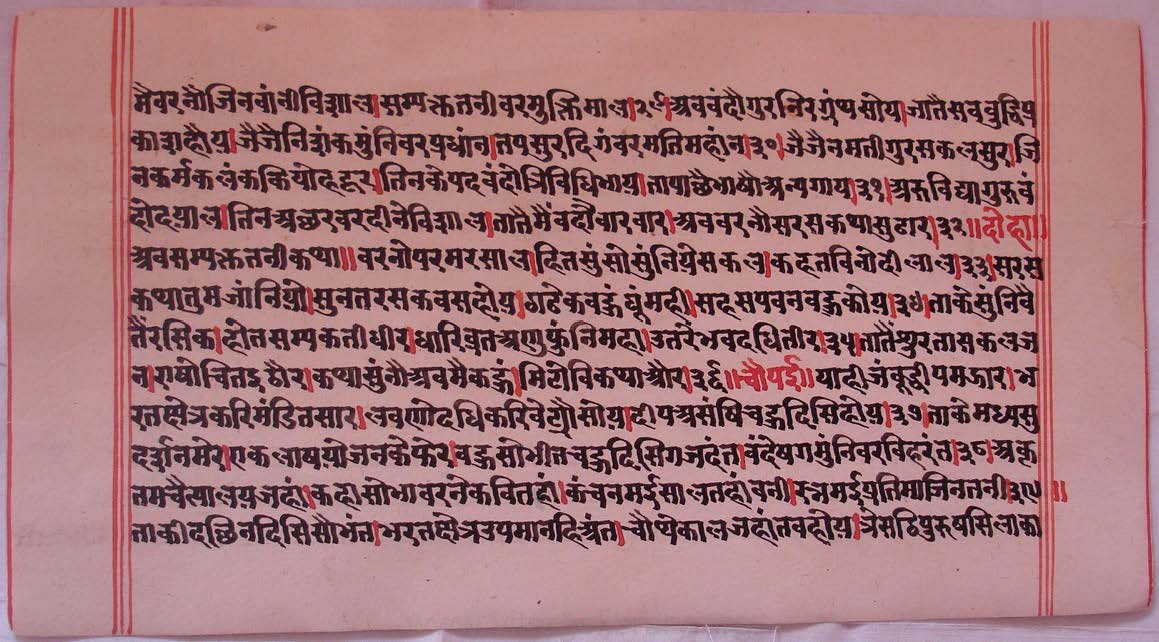 मैवरनौजिनवांनीविशाल।सम्पक्ततनीवरगुक्तिमाल।२९।अबवंदौगुरनिरग्रंथसोय।जातैसबबुद्धिप
काशहोय।जैजैनिशंकमुंनिवरप्रधांन।तपसुरदिगंवरमतिमहांन।३०।जैजैनमतीगुरसकलसुर।जि
नकर्मकलंककियोहहूर।तिनकेपदवंदोत्रिविधिभाय।तापाछैभाषौअन्यगाय।३१।अरुविद्यागुरुवं
होदयाल।तिनअछरवरदीनेविशाल।तातैमैवंदौवारवार।अबवरनौसरसकथासुढार।३२॥दोहा॥
अबसम्पक्ततनीकथा॥वरनोपरमरसाल।हितसुंसोसुंनियेसकल।कहतविनोदीलाल।३३।सरस
कथातुमजांनियो।सुनतरसकवसहोय।गाटेकवहुंधूंमही।सहसपवनवहुकोय।३४।ताकेसुनिवै
तैरसिक।होतसम्पकतीधीर।धारिव्रतअणुफुंनिमहा।उतरेंभवदधितीर।३५।तातैंशुरतासकलज
न।राषोचितइठौर।कथासुंनौअबमैकहुं।मिटोविकथाऔर।३६॥चौपई॥याहीजंबूदीपमजार।भ
रतक्षेत्रकरिमंडितसार।लवणोदधिकरिवेढ्यौसोय।दीपअसंषिचहुदिसिहोय।३७।ताकेमध्यसु
दर्शनमेर।एकलाषयोजनकैफेर।वहुसोभीत्तचहुदिसिगजदंत।वंदेषगमुंनिवरविहरंत।३८।अकृ
तमचैत्यालयजहां।कहासोभावरनेकवितहां।कंचनमईसालतहांवनी।रत्नमईप्रतिमाजिनतनी।३९॥
ताकीदछिनदिसिसोभंत।भरतक्षेत्रउपमानहिअंत।चौथेकालजहांतवहोय।त्रेसठिपुरुषसिलाका